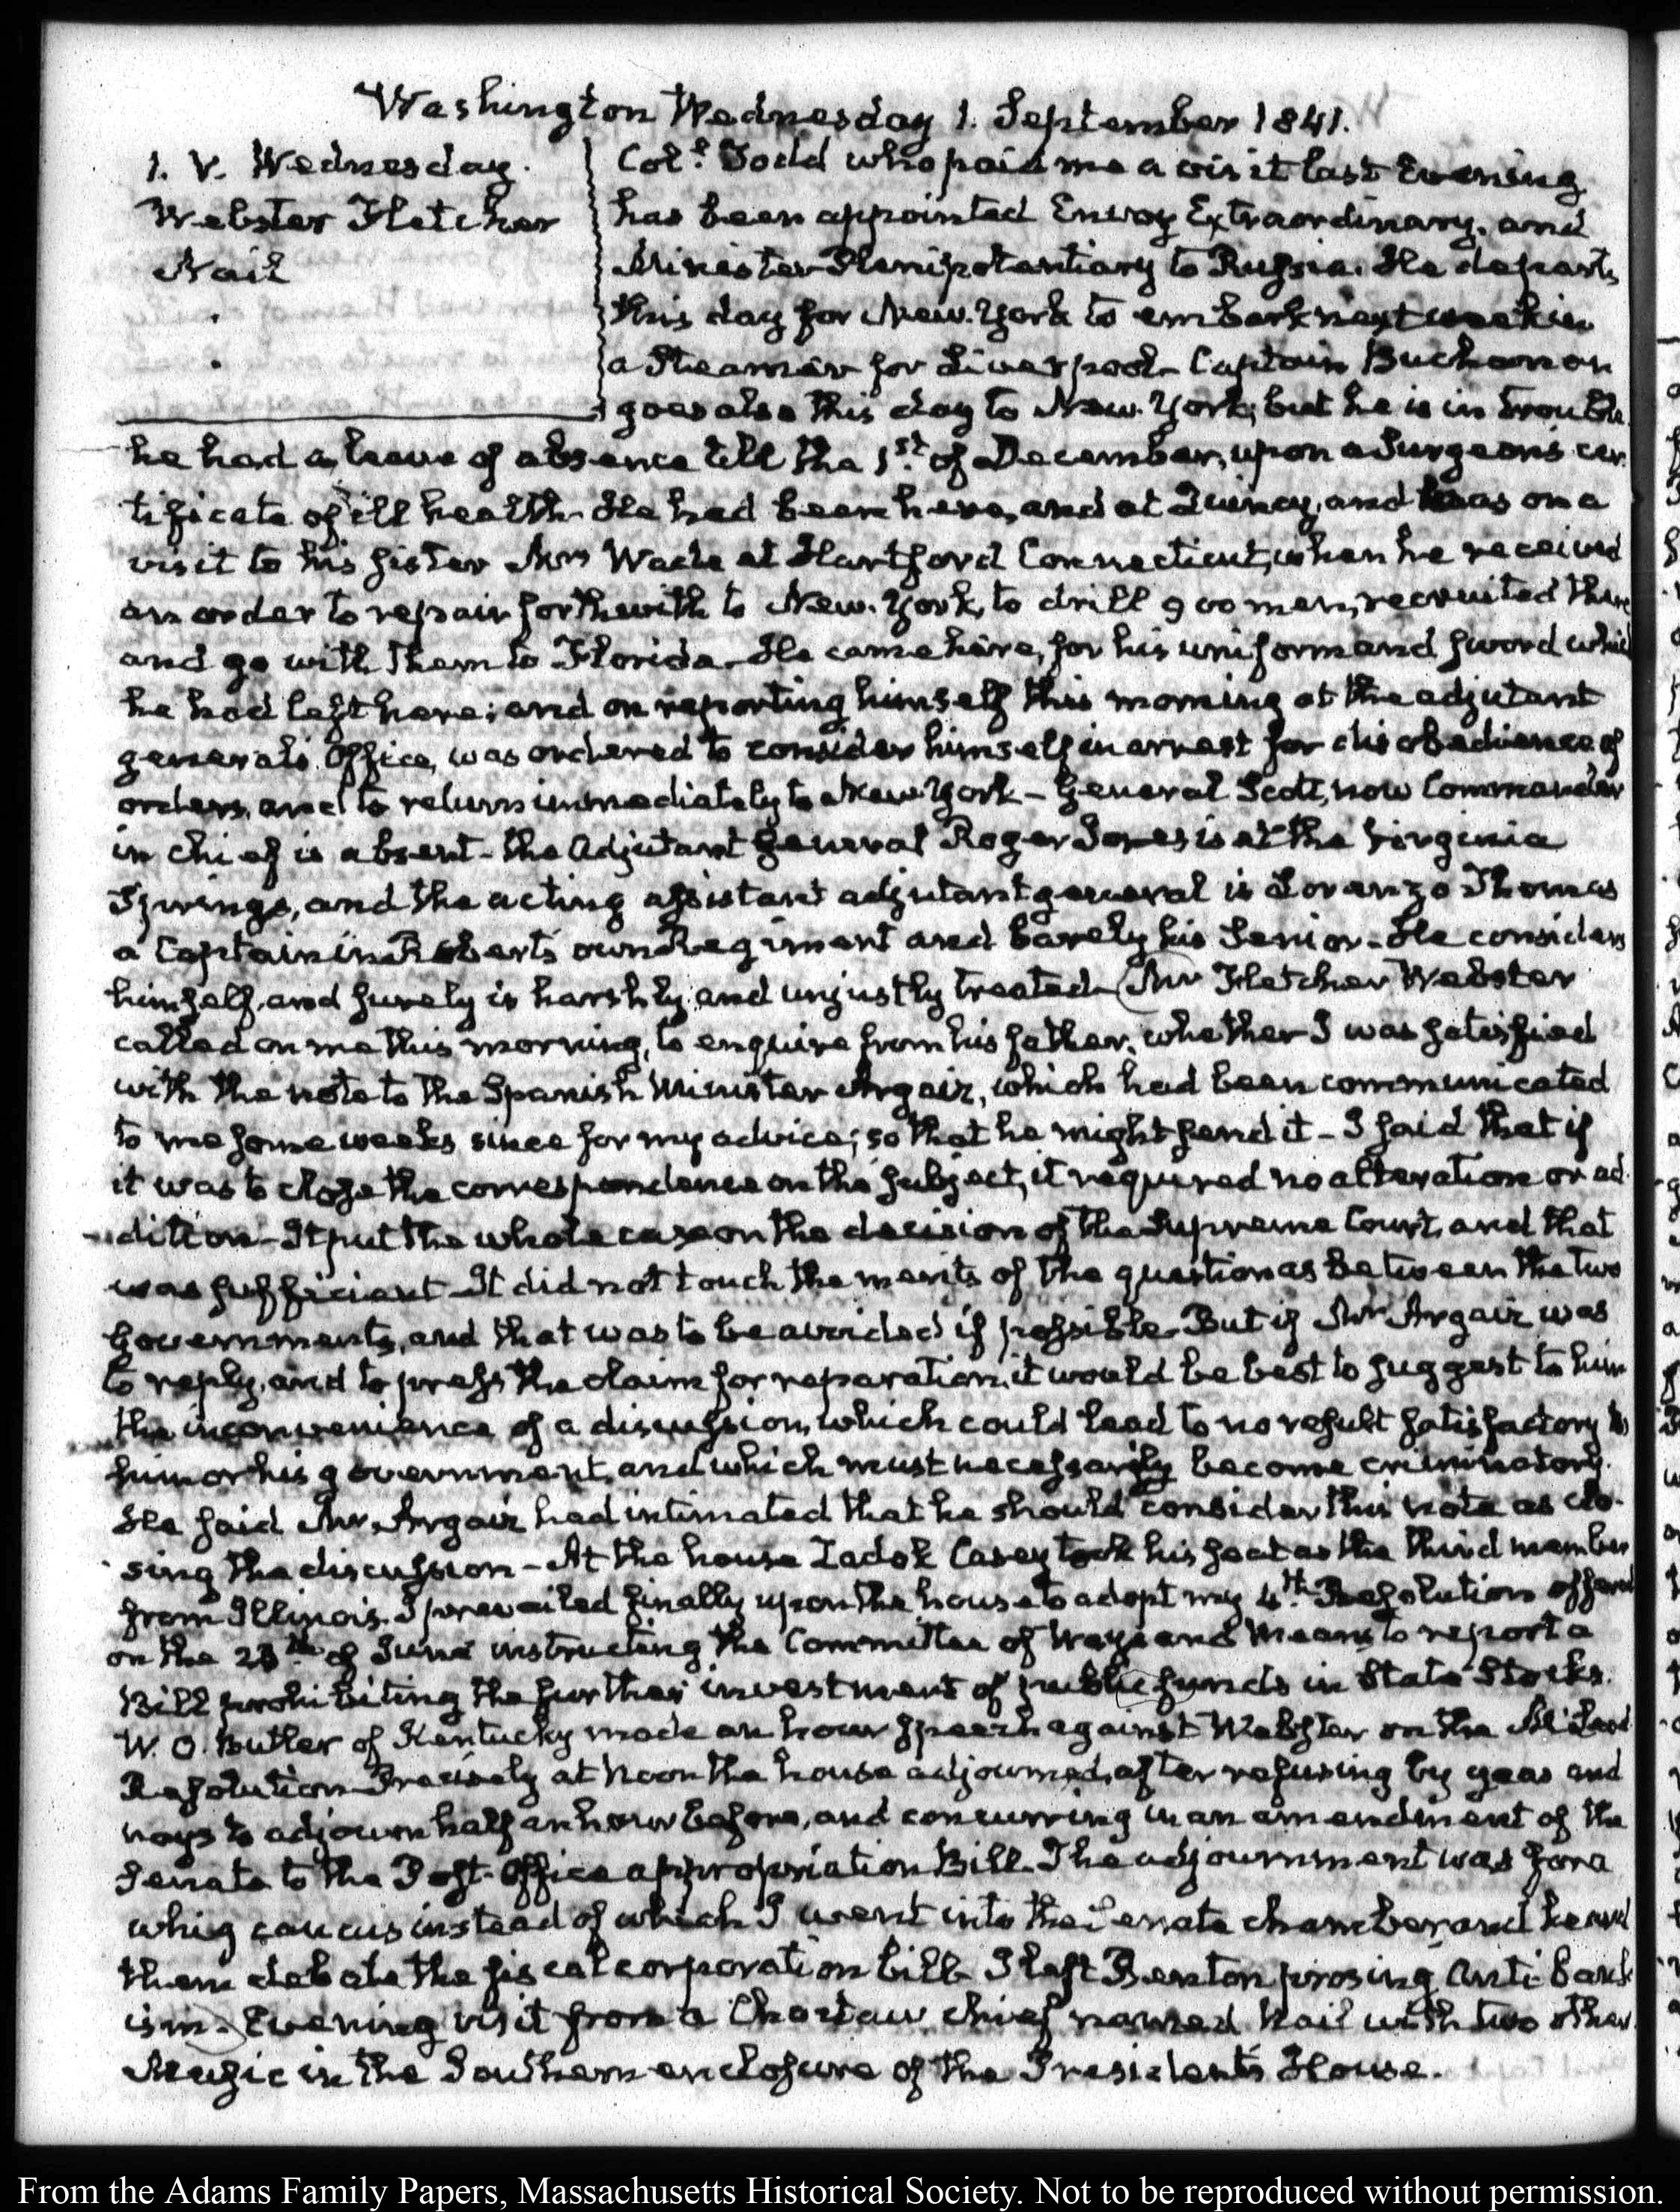 Washington Wednesday 1. September 1841.
1. V. Wednesday.
Webster Fletcher
Nail
Coll. Todd who paid me a visit last Evening
has been appointed Envoy Extraordinary, and
Minister Plenipotentiary to Russia. He departs
this day for New-York to embark next week in
a Steamer for Liverpool- Captain Buchanan
goes also this day to New-York; but he is in trouble
he had a leave of absence till the 1st. of December, upon a Surgeon's cer-
tificate of ill health- He had been here, and at Quincy, and was on a
visit to his sister Mrs Wade at Hartford Connecticut, when he received
an order to repair forthwith to New-York, to drill 900 men, recruited there
and go with them to Florida- He came here, for his uniform and sword which
he had left here; and on reporting himself this morning at the adjutant
general's Office, was ordered to consider himself in arrest for disobedience of
orders, and to return immediately to New-York- General Scott, now Commander
in chief is absent- the Adjutant General Roger Jones is at the Virginia
Springs, and the acting assistant adjutant general is Lorenzo Thomas
a Captain in Robert's own Regiment and barely his Senior- He considers
himself, and surely is harshly, and unjustly treated- Mr Fletcher Webster
called on me this morning, to enquire from his father, whether I was satisfied
with the note to the Spanish Minister Argaiz, which had been communicated
to me some weeks since for my advice; so that he might send it- I said that if
it was to close the correspondence on the subject, it required no alteration or ad-
dition- It put the whole case on the decision of the Supreme Court, and that
was sufficient- It did not touch the merits of the question as between the two
Governments, and that was to be avoided if possible- But if Mr Argaiz was
to reply, and to press the claim for reparation, it would be best to suggest to him
the inconvenience of a discussion, which could lead to no result satisfactory to
him or his government, and which must necessarily become criminatory.
He said Mr. Argaiz had intimated that he should consider this note as clo-
sing the discussion- At the house Zadok Casey took his seat as the third member
from Illinois. I prevailed finally upon the house to adopt my 4th. Resolution offered
on the of June instructing the Committee of Ways and Means to report a
Bill prohibiting the further investment of public funds in State Stocks.
W. O. Butler of Kentucky made an hour speech against Webster on the McLeod
Resolution- Precisely at Noon the house adjourned, after refusing by yeas and
nays to adjourn half an hour before, and concurring in an amendment of the
Senate to the Post-Office appropriation Bill- The adjournment was for a
whig caucus instead of which I went into the Senate chamber and heard
them debate the fiscal corporation bill- I left Benton prosing Anti-bank
ism- Evening visit from a Choctaw chief named Nail with two other
Music in the Southern enclosure of the President's House.
From the Adams Family Papers, Massachusetts Historical Society. Not to be reproduced without permission.